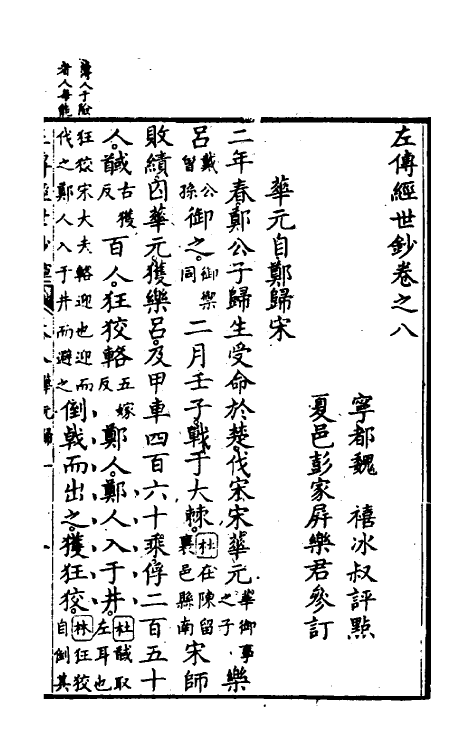 左傳經世鈔卷之八
寧都魏　禧冰叔評點
夏邑彭家屏樂君參訂
華元自鄭歸宋
二年春鄭公子歸生受命於楚伐宋宋華元華御事之子樂
呂戴公曾孫御之御樂同二月壬子戰于大棘杜在陳留襄邑縣南宋師
敗績囚華元獲樂呂及甲車四百六十乘俘二百五十
人馘古獲反百人狂狡輅五嫁反鄭人鄭人入于井杜馘取左耳也
狂狡宋大夫輅迎也迎而伐之鄭人入于井而避之倒戟而出之獲狂狡林狂狡自倒其